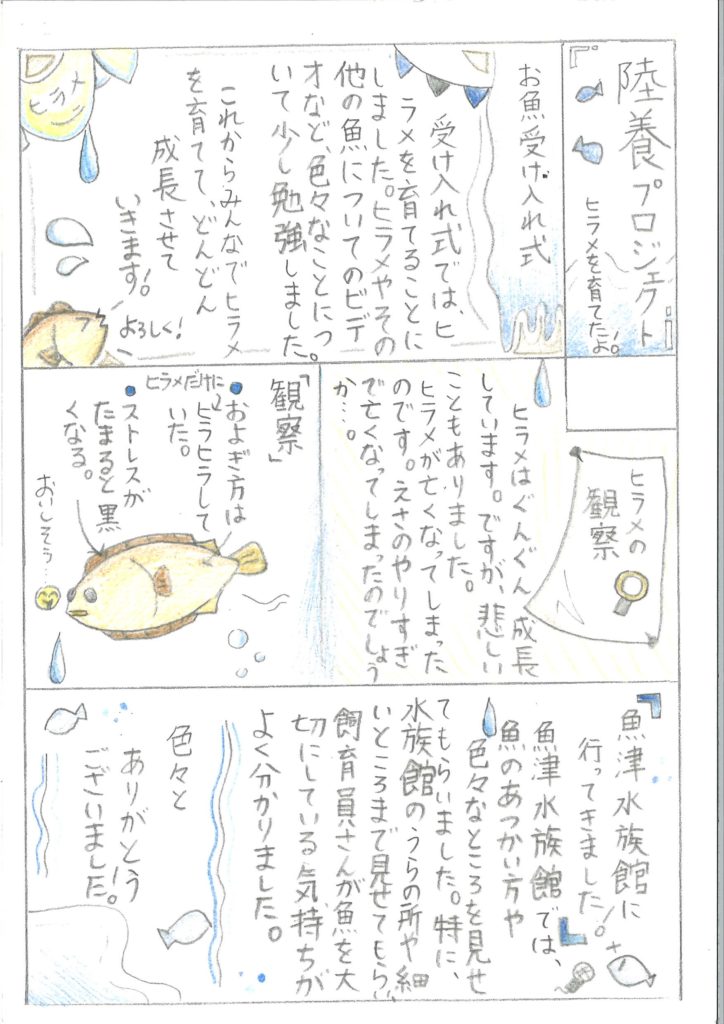 陸養プロジェクト
ヒラメを育てたよ!
お魚受け入れ式
受け入れ式では、ヒ
ラメを育てることに
しました。ヒラメやその
他の魚についてのビデ
オなど、色々なことにつ
いて少し勉強しました。
これからみんなでヒラメ
を育てて、どんどん
成長させて
いきます!。
ヒラメ
よろしく!
ヒラメの
観察
ヒラメはぐんぐん成長
しています。ですが、悲しい
こともありました。
ヒラメが亡くなってしまった
のです。えさのやりすぎ
で亡くなってしまったのでしょう
か…。
「観察」
●およぎ方は
ヒラメだけに
ヒラヒラして
いた。
●ストレスが
たまると黒
くなる。
おいしそう…
魚津水族館に
行ってきました!。
魚津水族館では、
魚のあつかい方や
色々なところを見せ
てもらいました。特に、
水族館のうらの所や細
いところまで見せてもらい、
飼育員さんが魚を大
切にしている気持ちが
よく分かりました。
色々と
ありがとう
ございました!。